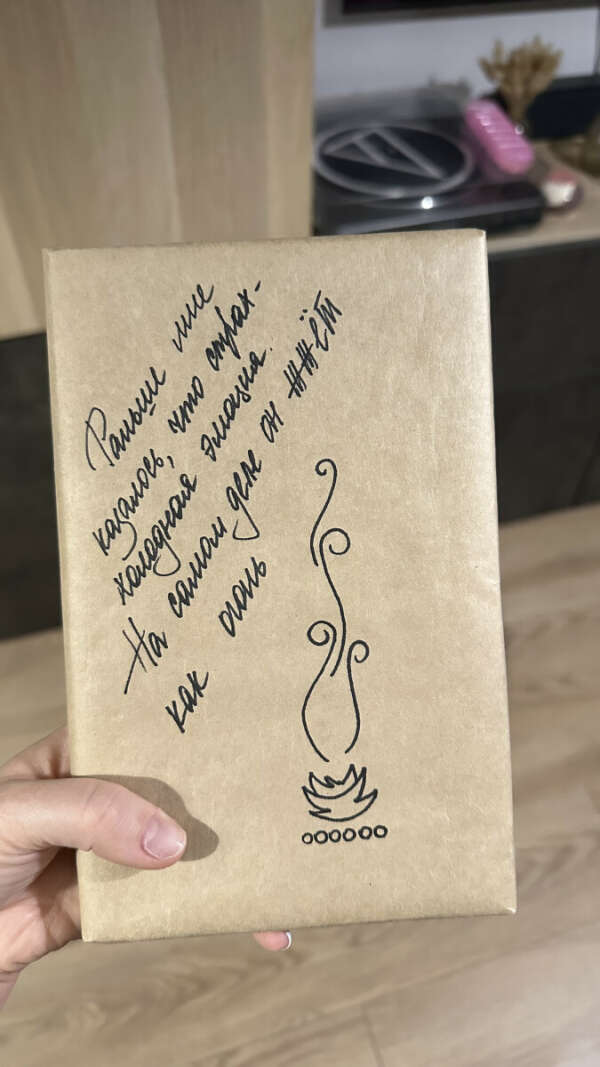 Раньше мне
казалось, что страх-
холодная эмоция.
На самом деле он ЖЖЁТ
как огонь